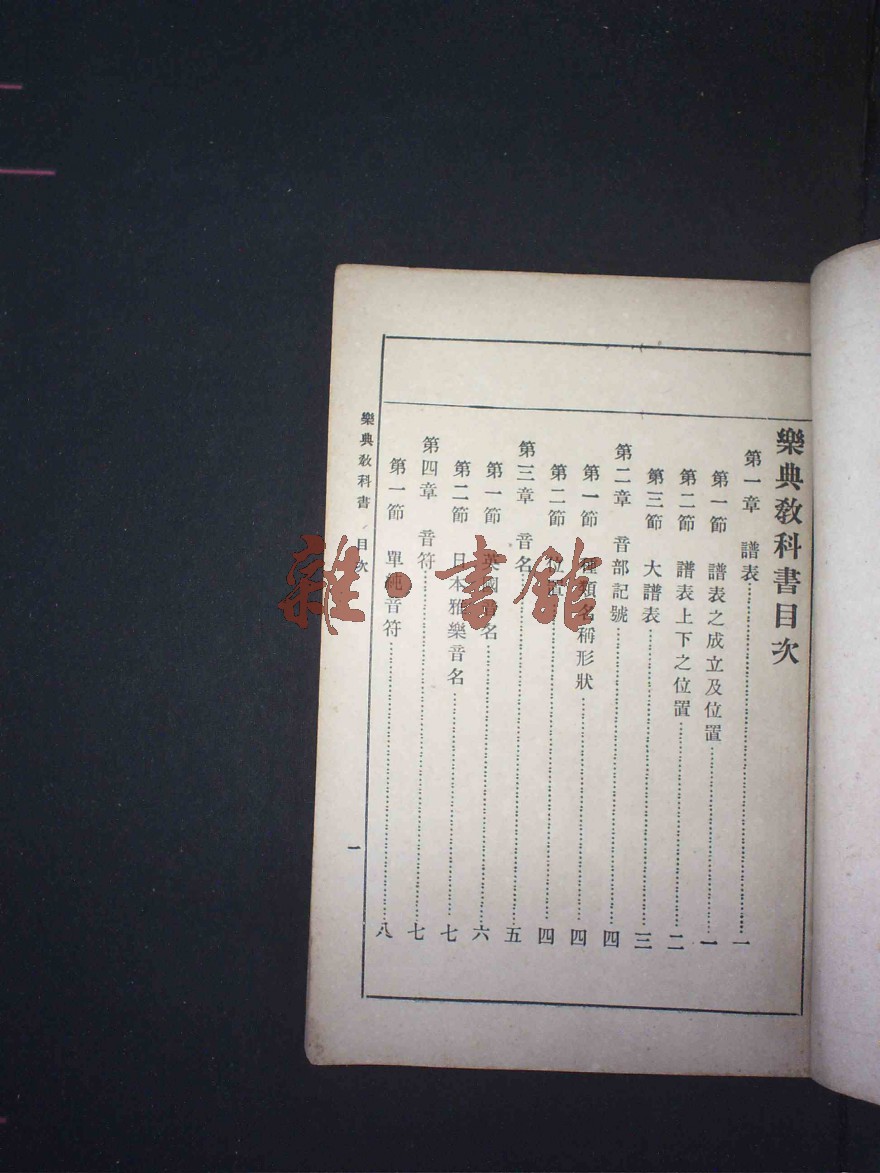 樂典教科書目次
第一章 譜表………一
第一節 譜表之成立及位置………一
第二節 譜表上下之位置………二
第三節 大譜表………三
第二章 音部記號………四
第一節 種類名稱形狀………四
第二節 位置………四
第三章 音名………五
第一節 英國音名………六
第二節 日本雅樂音名………七
第四章 音符………七
第一節 單純音符………八
樂典教科書 目次 一
雜·書館